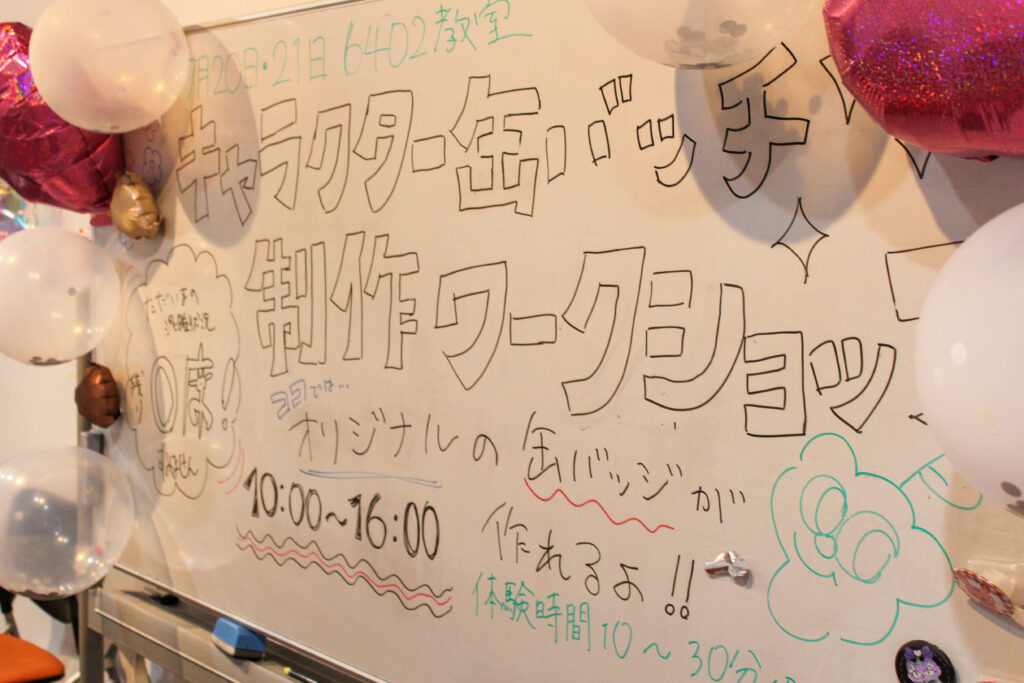 月20日・21日 6402教室
キャラクター缶バッチ
制作ワークショップ
ただいまの
混雑状況
残り
0席!
すみません
ココでは…
オリジナルの缶バッジが
作れるよ!!
10:00~16:00
体験時間10~30分